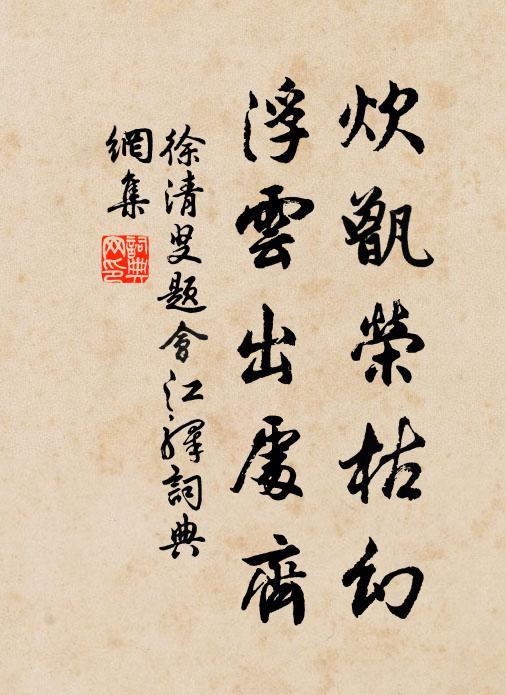 炊甑榮枯幻
浮雲出處齊
徐清叟題會江驛詞典
網集
詞典
网印